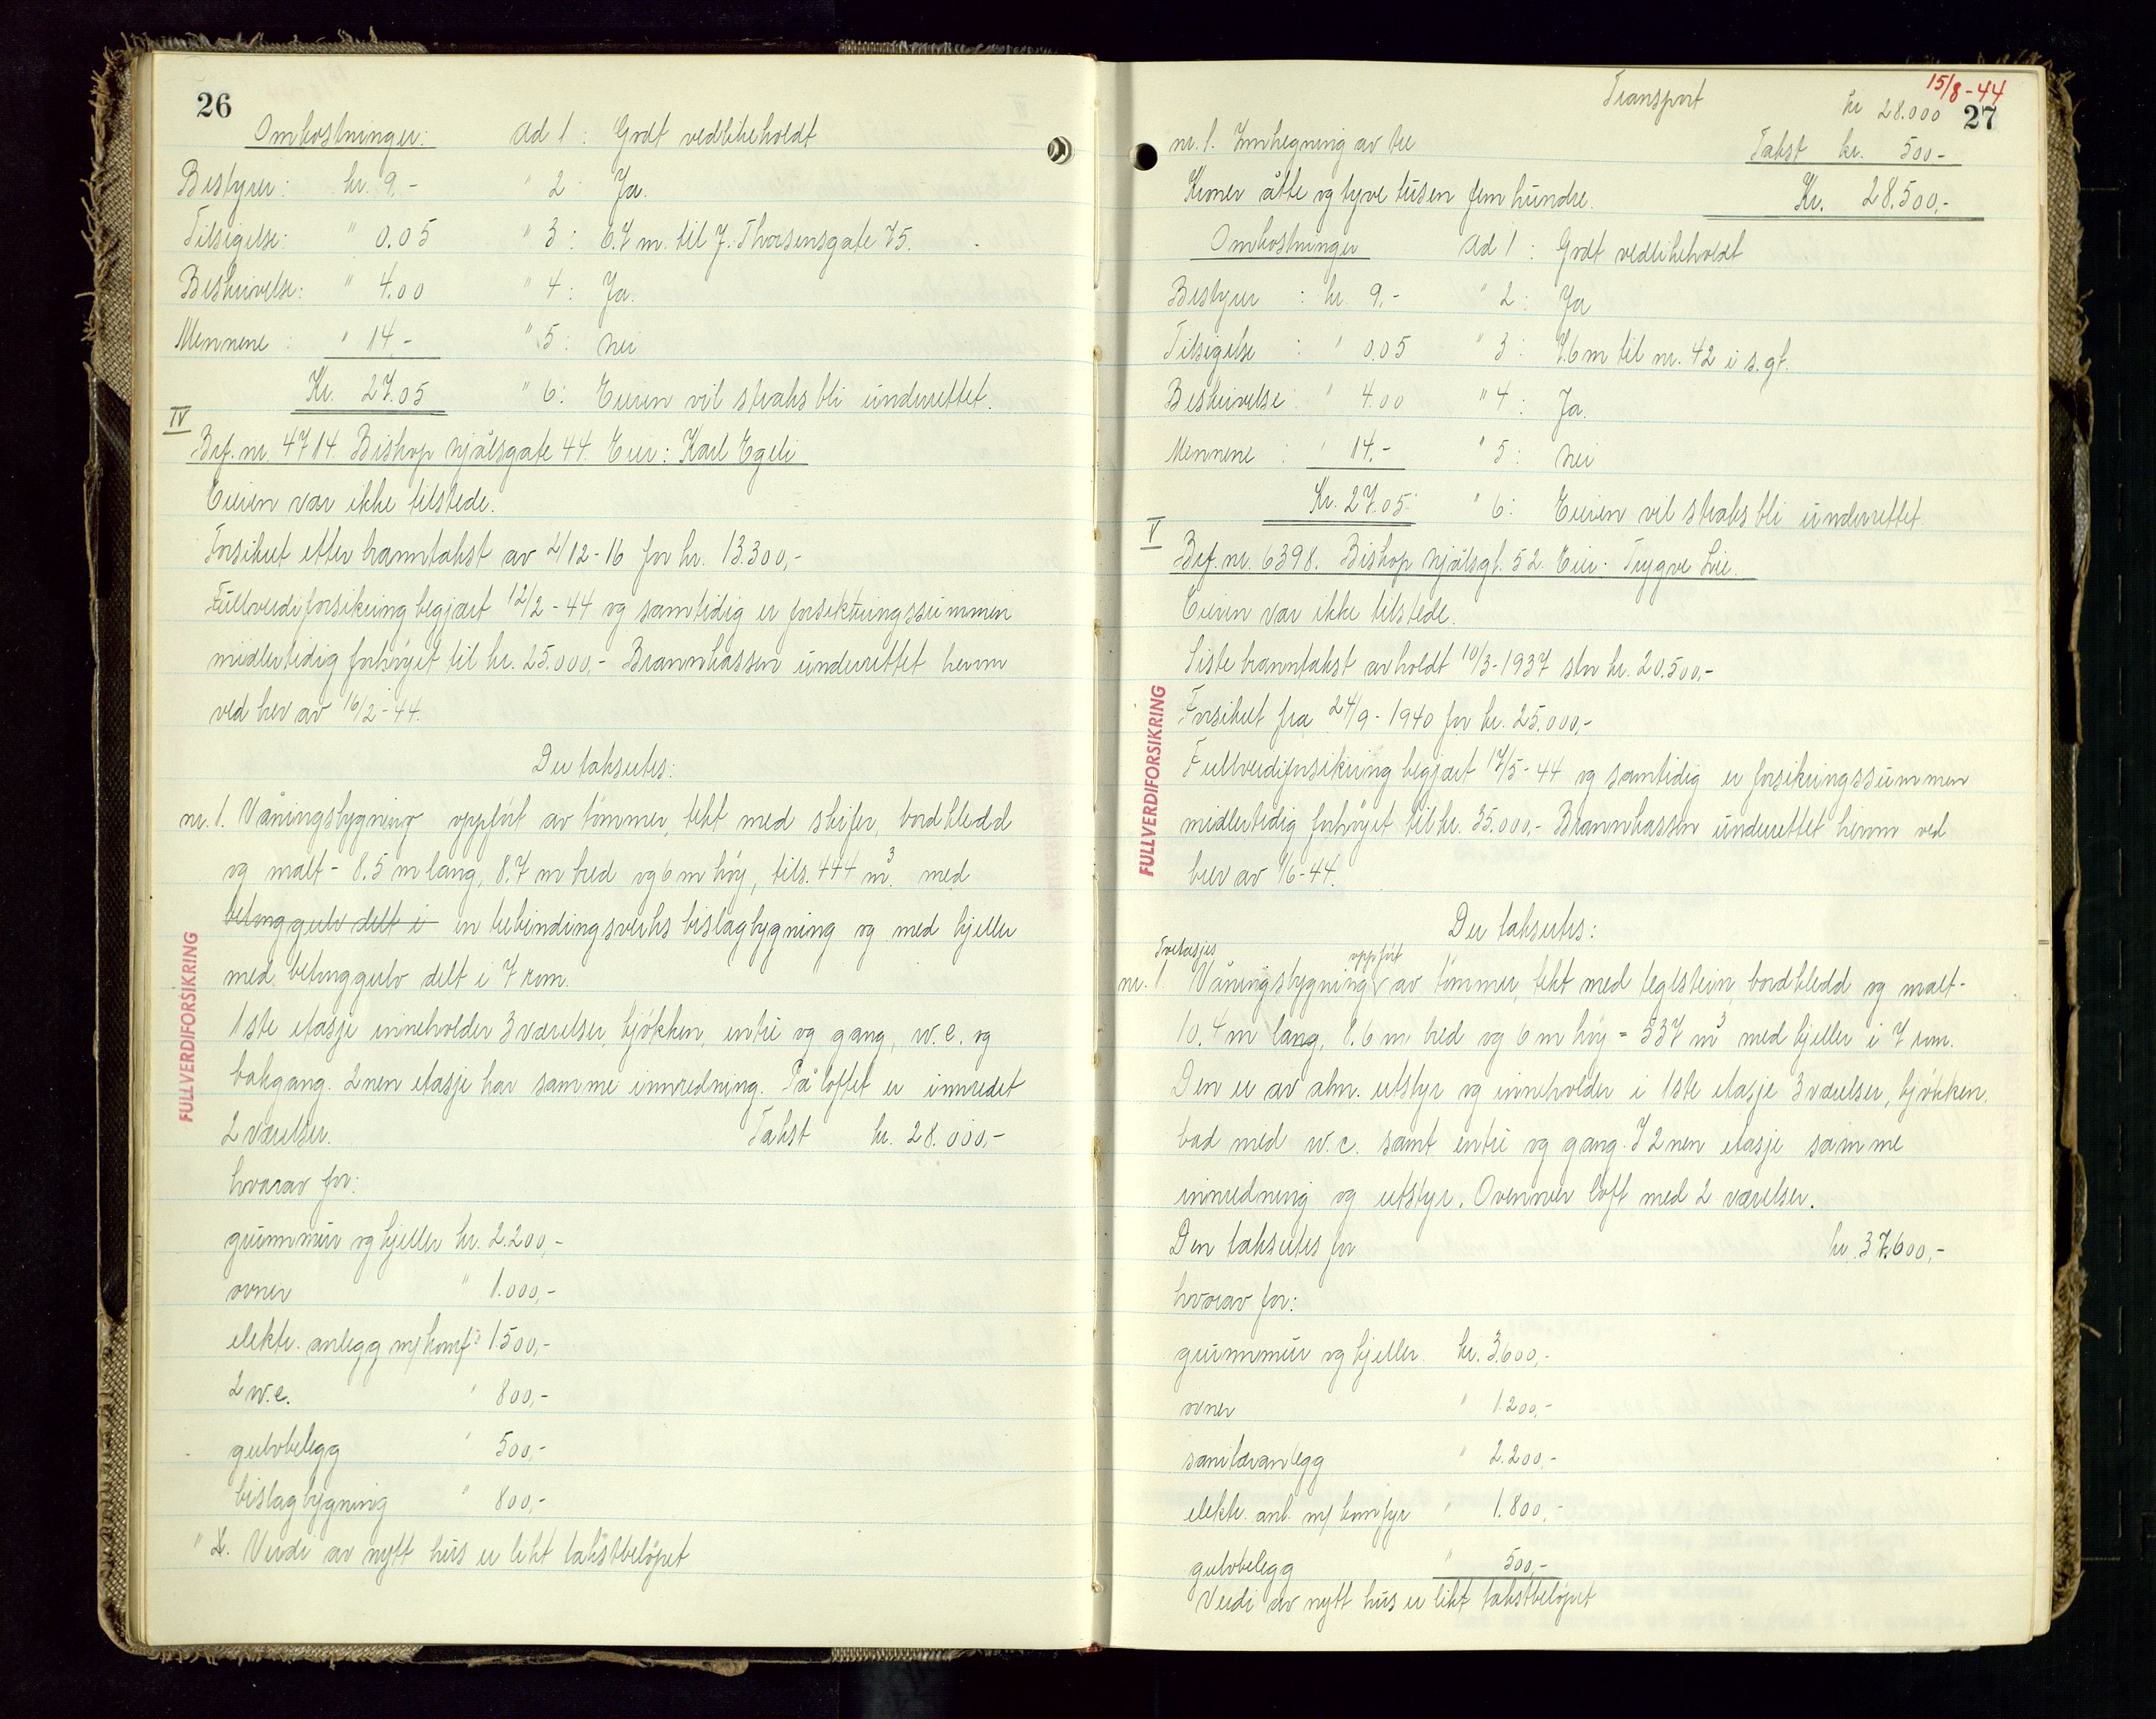 26
Omkostninger: Ad 1 : Godt vedlikeholdt
Bestyrer: kr. 9,- " 2 : Ja.
Tilsigelse: " 0.05 " 3 : 6.7 m. til J. Thorsensgate 75.
Beskrivelse: " 4.00 " 4 : Ja.
Mennene : " 14.- " 5 : Nei
Kr. 27.05 " 6 : Eieren vil straks bli underrettet.
IV
Brf. nr. 4714. Biskop Njålsgate 44. Eier: Karl Egeli
Eieren var ikke tilstede.
Forsikret etter branntakst av 2/12-16 for kr. 13.300,-
Fullverdiforsikring begjært 12/2-44 og samtidig er forsikringssummen
midlertidig forhøyet til kr. 25.000,- Brannkassen underrettet herom
ved brev av 16/2-44.
Der takseres:
nr. 1. Våningsbygning oppført av tømmer, tekt med skifer, bordkledd
og malt - 8.5 m lang, 8.7 m bred og 6 m høy, tils. 444 m³. med
betonggulv delt i en bebindingsverks bislagbygning og med kjeller
med betonggulv delt i 7 rom.
1ste etasje inneholder 3 værelser, kjøkken, entre og gang, w.c. og
bakgang. 2nen etasje har samme innredning. På loftet er innredet
2 værelser. Takst kr. 28.000,-
hvorav for:
grunnmur og kjeller kr. 2.200,-
ovner " 1.000,-
elektr. anlegg m/komf " 1.500,-
2 w.c. " 800,-
gulvbelegg " 500,-
bislagbygning " 800,-
" 2. Verdi av nytt hus er likt takstbeløpet
FULLVERDIFORSIKRING
15/8-44
27
Transport kr 28.000
nr. 1. Innhegning av tre Takst kr. 500-
Kroner åtte og tyve tusen fem hundre. Kr. 28.500,-
Omkostninger Ad 1 : Godt vedlikeholdt
Bestyrer : kr. 9,- " 2 : Ja
Tilsigelse : " 0.05 " 3 : 7.6 m til nr. 42 i s.gt.
Beskrivelse : " 4.00 " 4 : Ja.
Mennene : " 14.- " 5 : Nei
Kr. 27.05 " 6 : Eieren vil straks bli underrettet
V
Brf. nr. 6398. Biskop Njålsgt. 52. Eier: Trygve Lie.
Eieren var ikke tilstede.
Siste branntakst avholdt 10/3-1937 stor kr. 20.500,-
Forsikret fra 24/9-1940 for kr. 25.000,-
Fullverdiforsikring begjært 17/5-44 og samtidig er forsikringssummen
midlertidig forhøyet til kr. 35.000,- Brannkassen underrettet herom ved
brev av 1/6-44.
FULLVERDIFORSIKRING
Der takseres:
Toetasjes oppført
nr. 1. Våningsbygning av tømmer, tekt med teglstein, bordkledd og malt-
10.4 m lang, 8.6 m bred og 6 m høy = 537 m³ med kjeller i 7 rom.
Den er av alm. utstyr og inneholder i 1ste etasje 3 værelser, kjøkken,
bad med w.c. samt entre og gang. I 2nen etasje samme
innredning og utstyr. Ovenover loft med 2 værelser.
Den takseres for kr. 37.600,-
hvorav for:
grunnmur og kjeller kr. 3.600,-
ovner " 1.200,-
sanitæranlegg " 2.200,-
elektr. anl. m/komfyr " 1.800,-
gulvbelegg " 500,-
Verdi av nytt hus er likt takstbeløpet